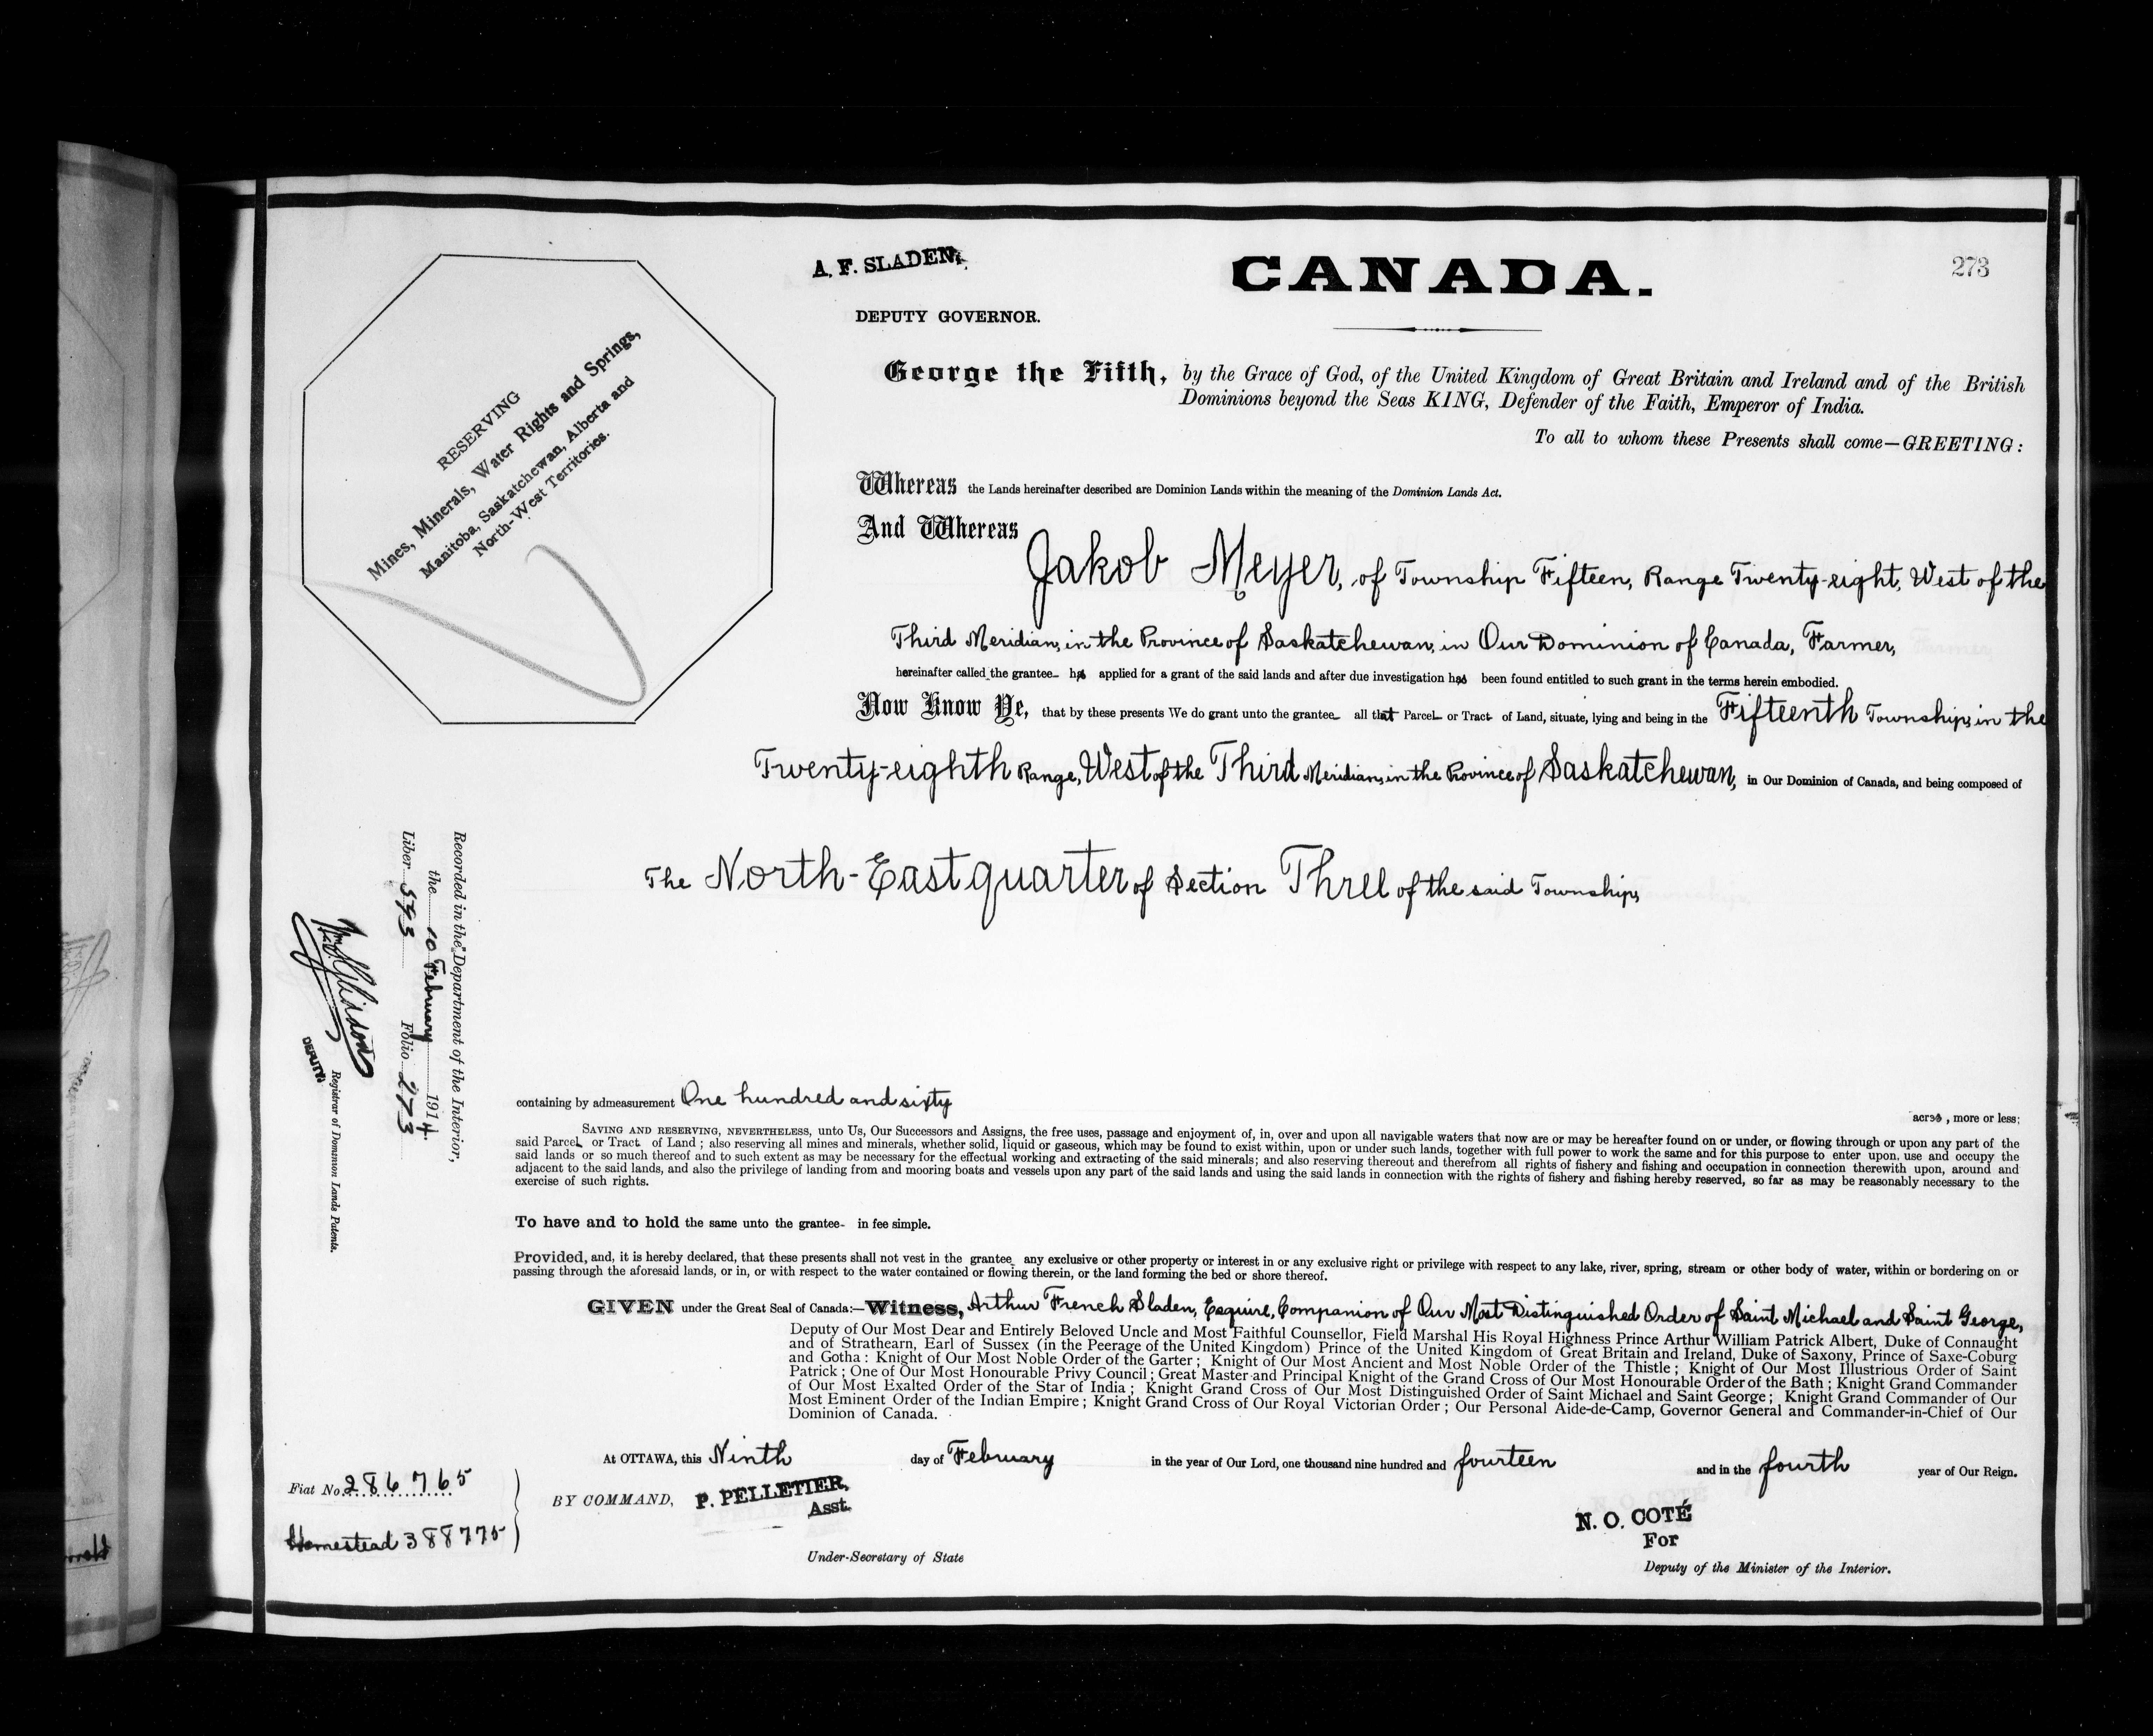 273
A. F. SLADEN,
CANADA.
DEPUTY GOVERNOR.
RESERVING
Mines, Minerals, Water Rights and Springs,
Manitoba, Saskatchewan, Alberta and
North-West Territories.
George the Fifth, by the Grace of God, of the United Kingdom of Great Britain and Ireland and of the British
Dominions beyond the Seas KING, Defender of the Faith, Emperor of India.
To all to whom these Presents shall come—GREETING:
Whereas the Lands hereinafter described are Dominion Lands within the meaning of the Dominion Lands Act.
And Whereas
Jakob Meyer, of Township Fifteen, Range Twenty-eight, West of the
Third Meridian, in the Province of Saskatchewan, in Our Dominion of Canada, Farmer,
hereinafter called the grantee has applied for a grant of the said lands and after due investigation has been found entitled to such grant in the terms herein embodied.
Now Know Ye, that by these presents We do grant unto the grantee all that Parcel or Tract of Land, situate, lying and being in the Fifteenth Township, in the
Twenty-eighth Range, West of the Third Meridian, in the Province of Saskatchewan, in Our Dominion of Canada, and being composed of
The North-East quarter of Section Three of the said Township,
Recorded in the Department of the Interior,
the 10 February 1914
Liber 593 Folio 273
DEPUTY
Registrar of Dominion Lands Patents.
containing by admeasurement One hundred and sixty acres, more or less;
SAVING AND RESERVING, NEVERTHELESS, unto Us, Our Successors and Assigns, the free uses, passage and enjoyment of, in, over and upon all navigable waters that now are or may be hereafter found on or under, or flowing through or upon any part of the
said Parcel or Tract of Land; also reserving all mines and minerals, whether solid, liquid or gaseous, which may be found to exist within, upon or under such lands, together with full power to work the same and for this purpose to enter upon, use and occupy the
said lands or so much thereof and to such extent as may be necessary for the effectual working and extracting of the said minerals; and also reserving thereout and therefrom all rights of fishery and fishing and occupation in connection therewith upon, around and
adjacent to the said lands, and also the privilege of landing from and mooring boats and vessels upon any part of the said lands and using the said lands in connection with the rights of fishery and fishing hereby reserved, so far as may be reasonably necessary to the
exercise of such rights.
To have and to hold the same unto the grantee in fee simple.
Provided, and, it is hereby declared, that these presents shall not vest in the grantee any exclusive or other property or interest in or any exclusive right or privilege with respect to any lake, river, spring, stream or other body of water, within or bordering on or
passing through the aforesaid lands, or in, or with respect to the water contained or flowing therein, or the land forming the bed or shore thereof.
GIVEN under the Great Seal of Canada:—Witness, Arthur French Sladen, Esquire, Companion of Our Most Distinguished Order of Saint Michael and Saint George,
Deputy of Our Most Dear and Entirely Beloved Uncle and Most Faithful Counsellor, Field Marshal His Royal Highness Prince Arthur William Patrick Albert, Duke of Connaught
and of Strathearn, Earl of Sussex (in the Peerage of the United Kingdom) Prince of the United Kingdom of Great Britain and Ireland, Duke of Saxony, Prince of Saxe-Coburg
and Gotha: Knight of Our Most Noble Order of the Garter; Knight of Our Most Ancient and Most Noble Order of the Thistle; Knight of Our Most Illustrious Order of Saint
Patrick; One of Our Most Honourable Privy Council; Great Master and Principal Knight of the Grand Cross of Our Most Honourable Order of the Bath; Knight Grand Commander
of Our Most Exalted Order of the Star of India; Knight Grand Cross of Our Most Distinguished Order of Saint Michael and Saint George; Knight Grand Commander of Our
Most Eminent Order of the Indian Empire; Knight Grand Cross of Our Royal Victorian Order; Our Personal Aide-de-Camp, Governor General and Commander-in-Chief of Our
Dominion of Canada.
At OTTAWA, this Ninth day of February in the year of Our Lord, one thousand nine hundred and fourteen and in the fourth year of Our Reign.
Fiat No. 286765
Homestead 388775
BY COMMAND, P. PELLETIER,
Asst.
Under-Secretary of State
N. O. COTÉ
For
Deputy of the Minister of the Interior.